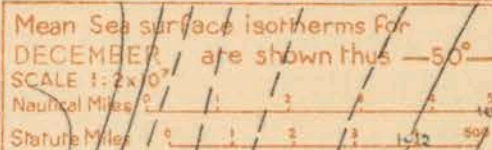 Mean Sea surface isotherms for
DECEMBER are shown thus —50°—
SCALE 1:2x10⁷
Nautical Miles 0 1 2 3 4 5
Statute Miles 0 1 2 3 4 500
1912